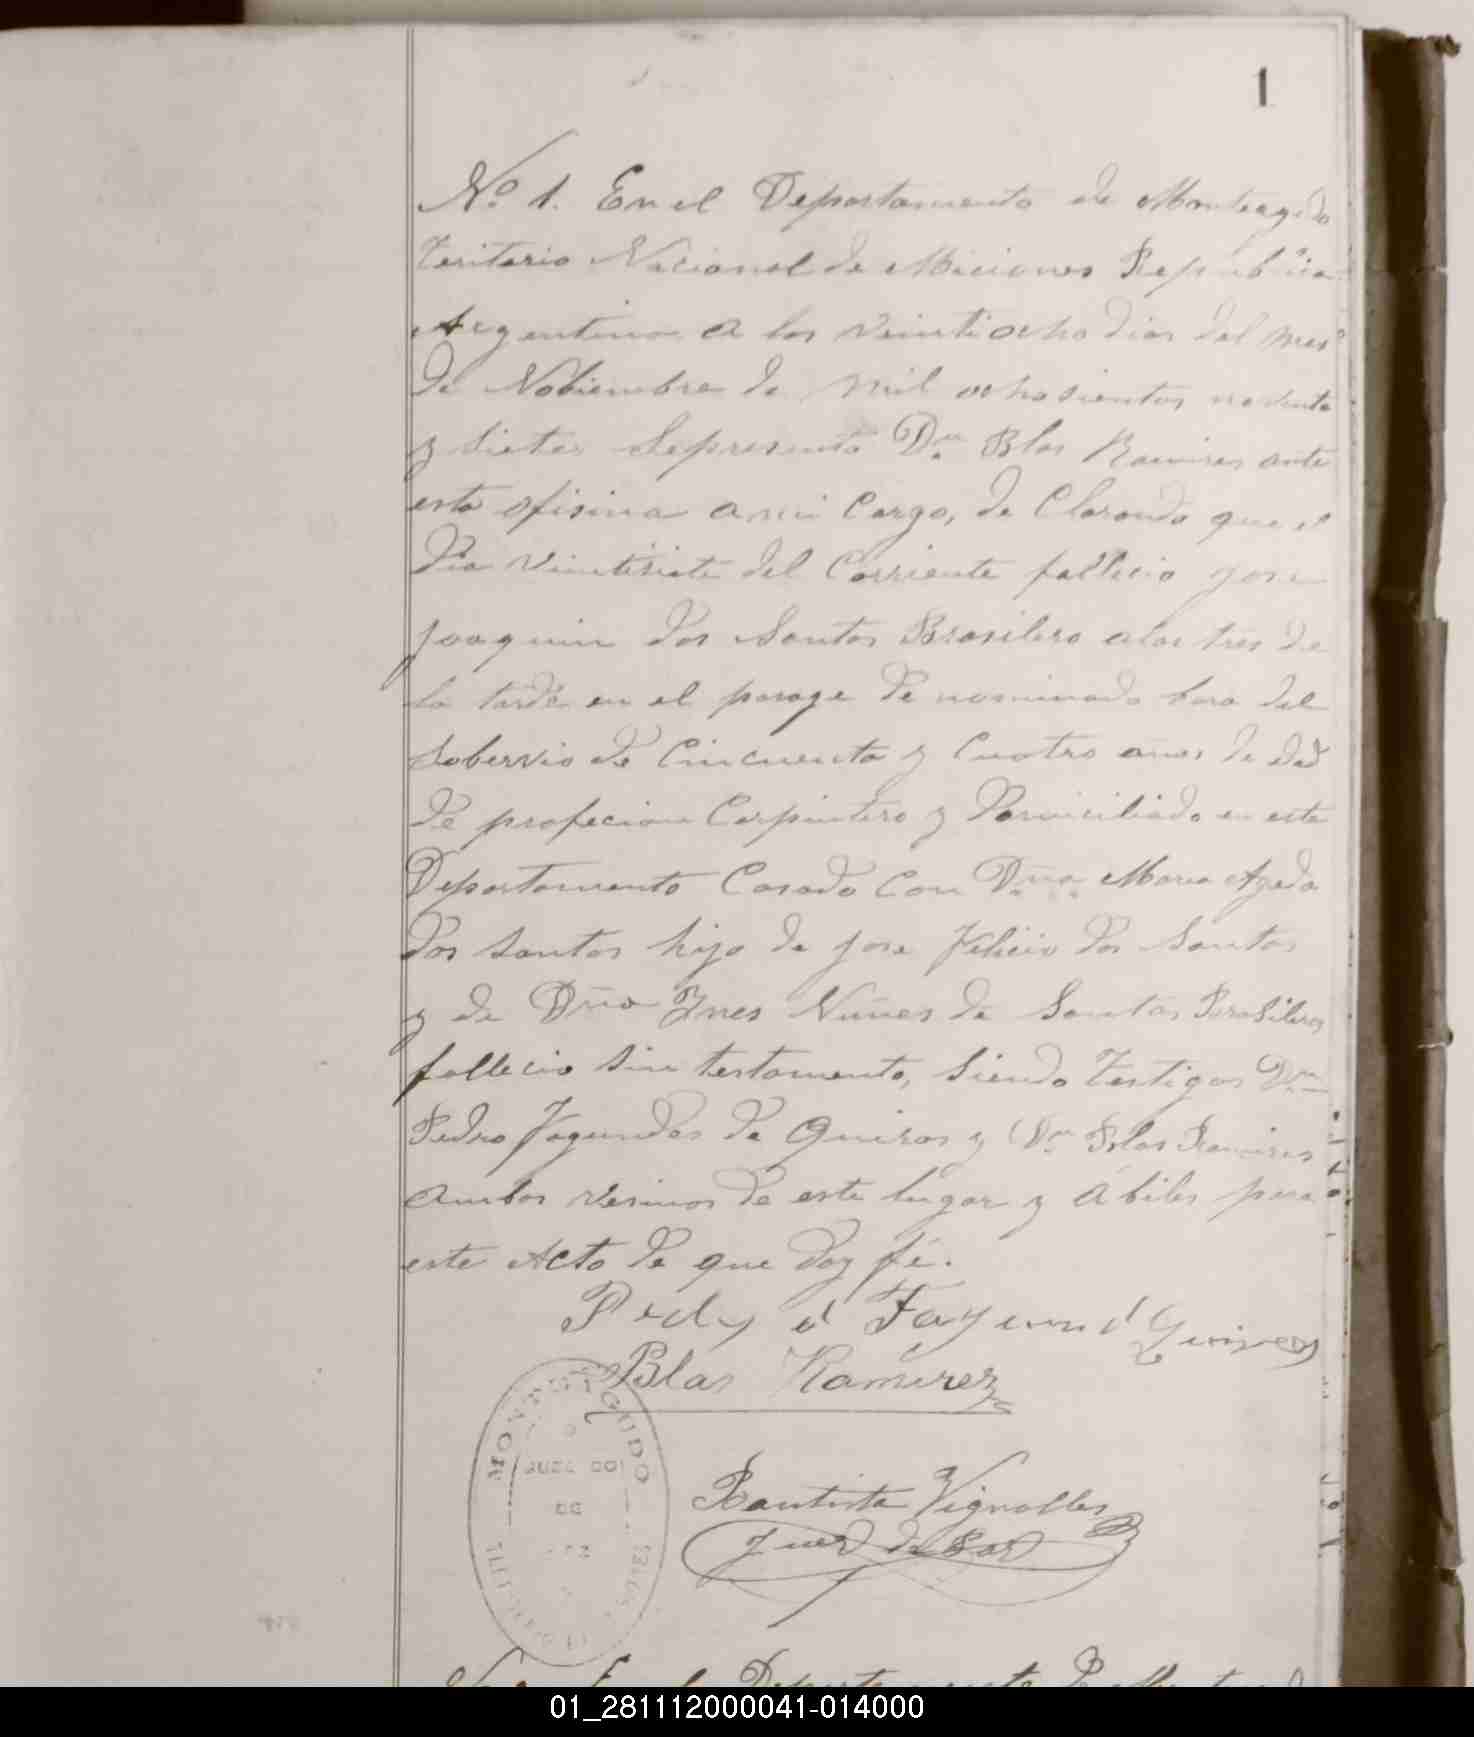 1
Nº 1. En el Departamento de Monteagudo
Teritorio Nacional de Miciones Republica
Argentina a los veintiocho dias del mes
de Nobiembre de mil ochosientos noventa
y siete se presento Dn. Blas Ramires ante
esta ofisina a mi Cargo, de Clarando que el
dia veintisiete del Corriente fallecio Jose
Joaquin dos Santos Brasilero a las tres de
la tarde en el parage de nominado bara del
Sobervio de Cincuenta y Cuatro años de edad
de profecion Carpintero y Domiciliado en este
Departamento Casado Con Dña Maria Agada
dos Santos hijo de Jose Felicio dos Santos
y de Dña Ynes Nuñes de Santos Brasileros
fallecio sin testamento, siendo Testigos Dn
Pedro Fagundes de Quiros y Dn Blas Ramires
ambos vesinos de este lugar y Abiles para
este Acto de que doy fé.
Pedro Fagund Quiros
Blas Ramirez
MONTEAGUDO
JUZGADO
DE
PAZ
Bautista Vignolles
Juez de Paz
Departamento
01_281112000041-014000